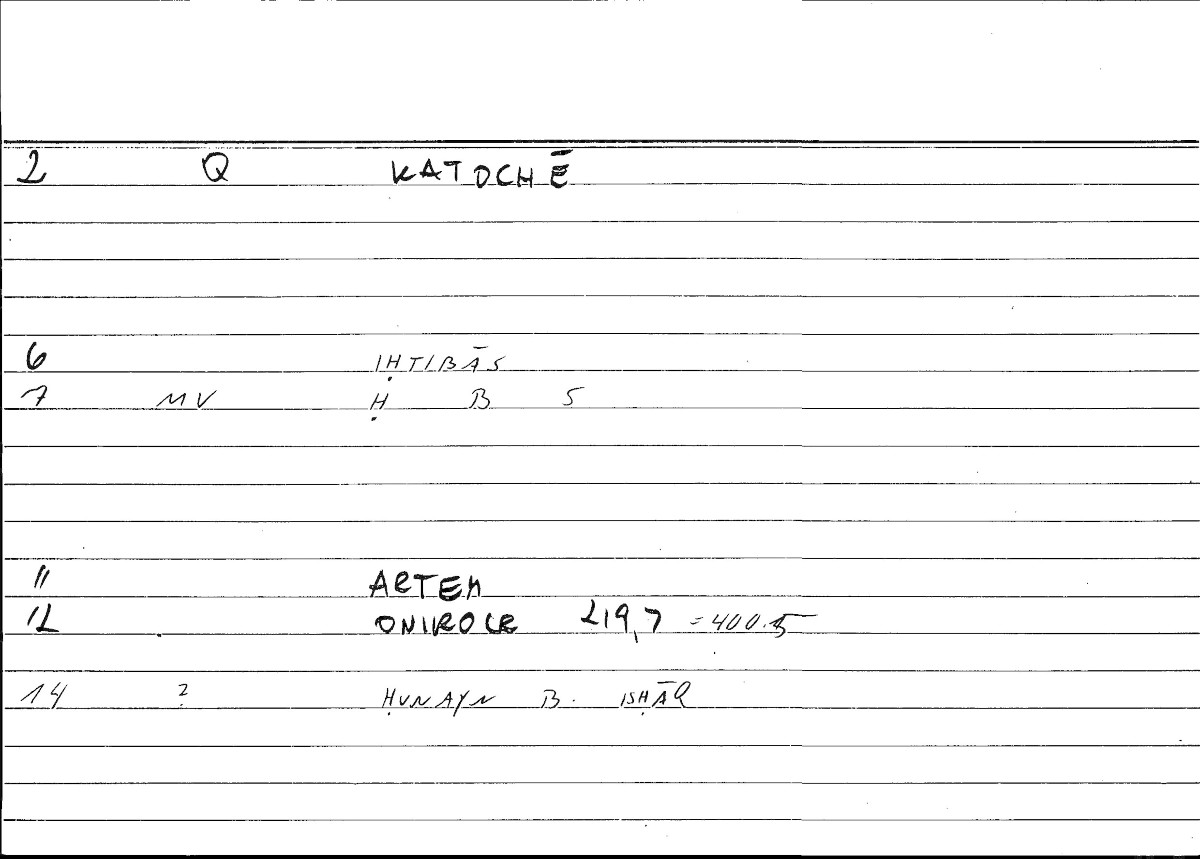 2 Q KATOCHĒ
6 IḤTIBĀS
7 MV Ḥ B S
11 ARTEM
12 ONIROCR 219,7 = 400.15
14 ? ḤUNAYN B. ISḤĀQ